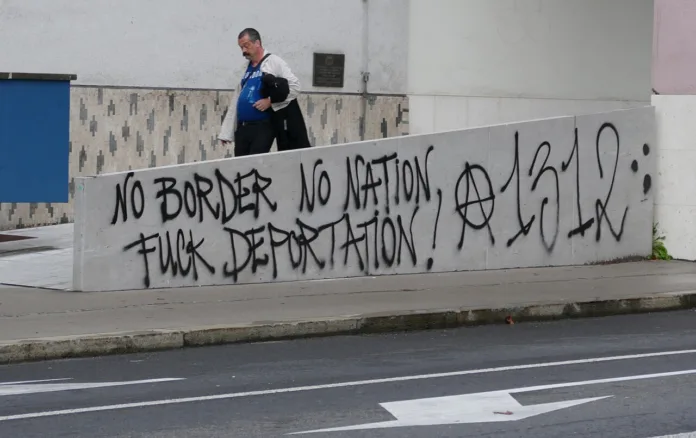 NO BORDER NO NATION,
FUCK DEPORTATION!
Ⓐ 1312